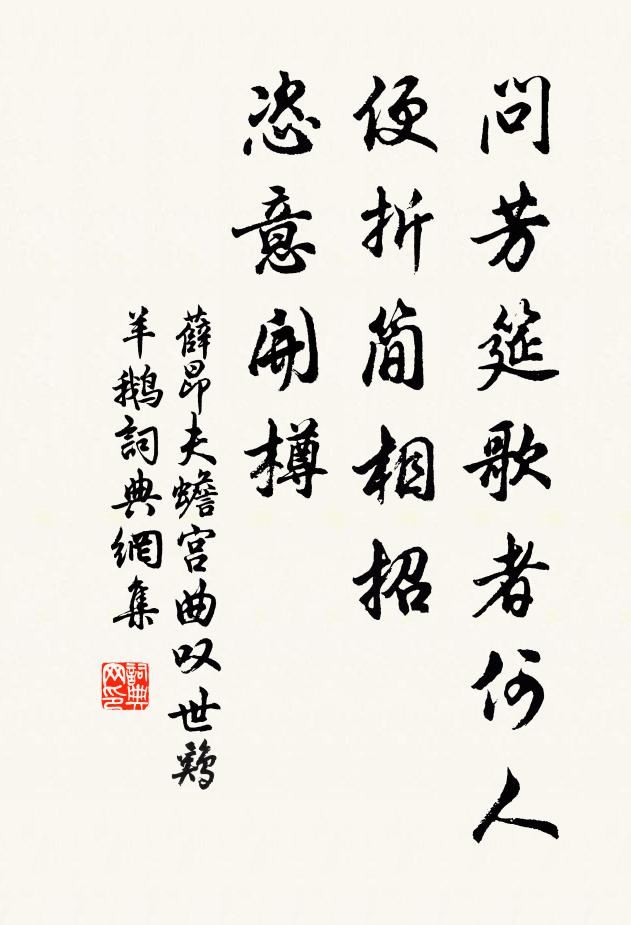 問芳筵歌者何人
便折简相招
恣意開樽
薛昂夫蟾宫曲叹世鷄
羊鵝詞典網集
詞典网印